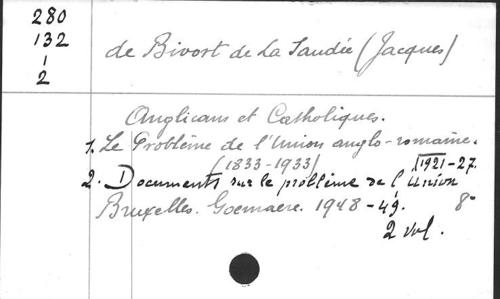 280
132
1
2
de Bivort de La Saudée (Jacques)
Anglicans et Catholiques.
1. Le Problème de l'Union anglo-romaine.
(1833-1933)
1921-27.
2. Documents sur le problème de l'Union
Bruxelles. Goemaere. 1948-49. 8°
2 vol.